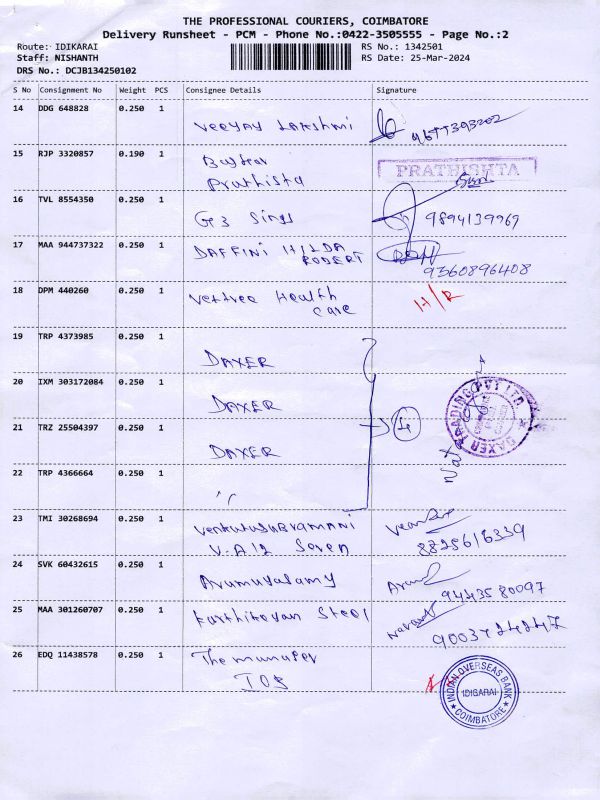 THE PROFESSIONAL COURIERS, COIMBATORE
Delivery Runsheet - PCM - Phone No.:0422-3505555 - Page No.:2
Route: IDIKARAI RS No.: 1342501
Staff: NISHANTH RS Date: 25-Mar-2024
DRS No.: DCJB134250102
S No Consignment No Weight PCS Consignee Details Signature
14 DDG 648828 0.250 1
Veeyay Lakshmi 9677393202
15 RJP 3320857 0.190 1
PRATHISHTA
Prathista
16 TVL 8554350 0.250 1
G3 Sings 9894139969
17 MAA 944737322 0.250 1
DAFFINI HILDA
ROBERT
9360896408
18 DPM 440260 0.250 1
Vettree Health
care
H/R
19 TRP 4373985 0.250 1
DAXER
20 IXM 303172084 0.250 1
DAXER
21 TRZ 25504397 0.250 1
DAXER
4
DAXER TRADING PVT LTD
22 TRP 4366664 0.250 1
"
23 TMI 30268694 0.250 1
Venkutusubramani
V.A12 Seven
8825616339
24 SVK 60432615 0.250 1
Arumuyasamy
9443580097
25 MAA 301260707 0.250 1
Karthikeyan Steel
9003724247
26 EDQ 11438578 0.250 1
The manager
IOB
INDIAN OVERSEAS BANK
IDIGARAI
COIMBATORE